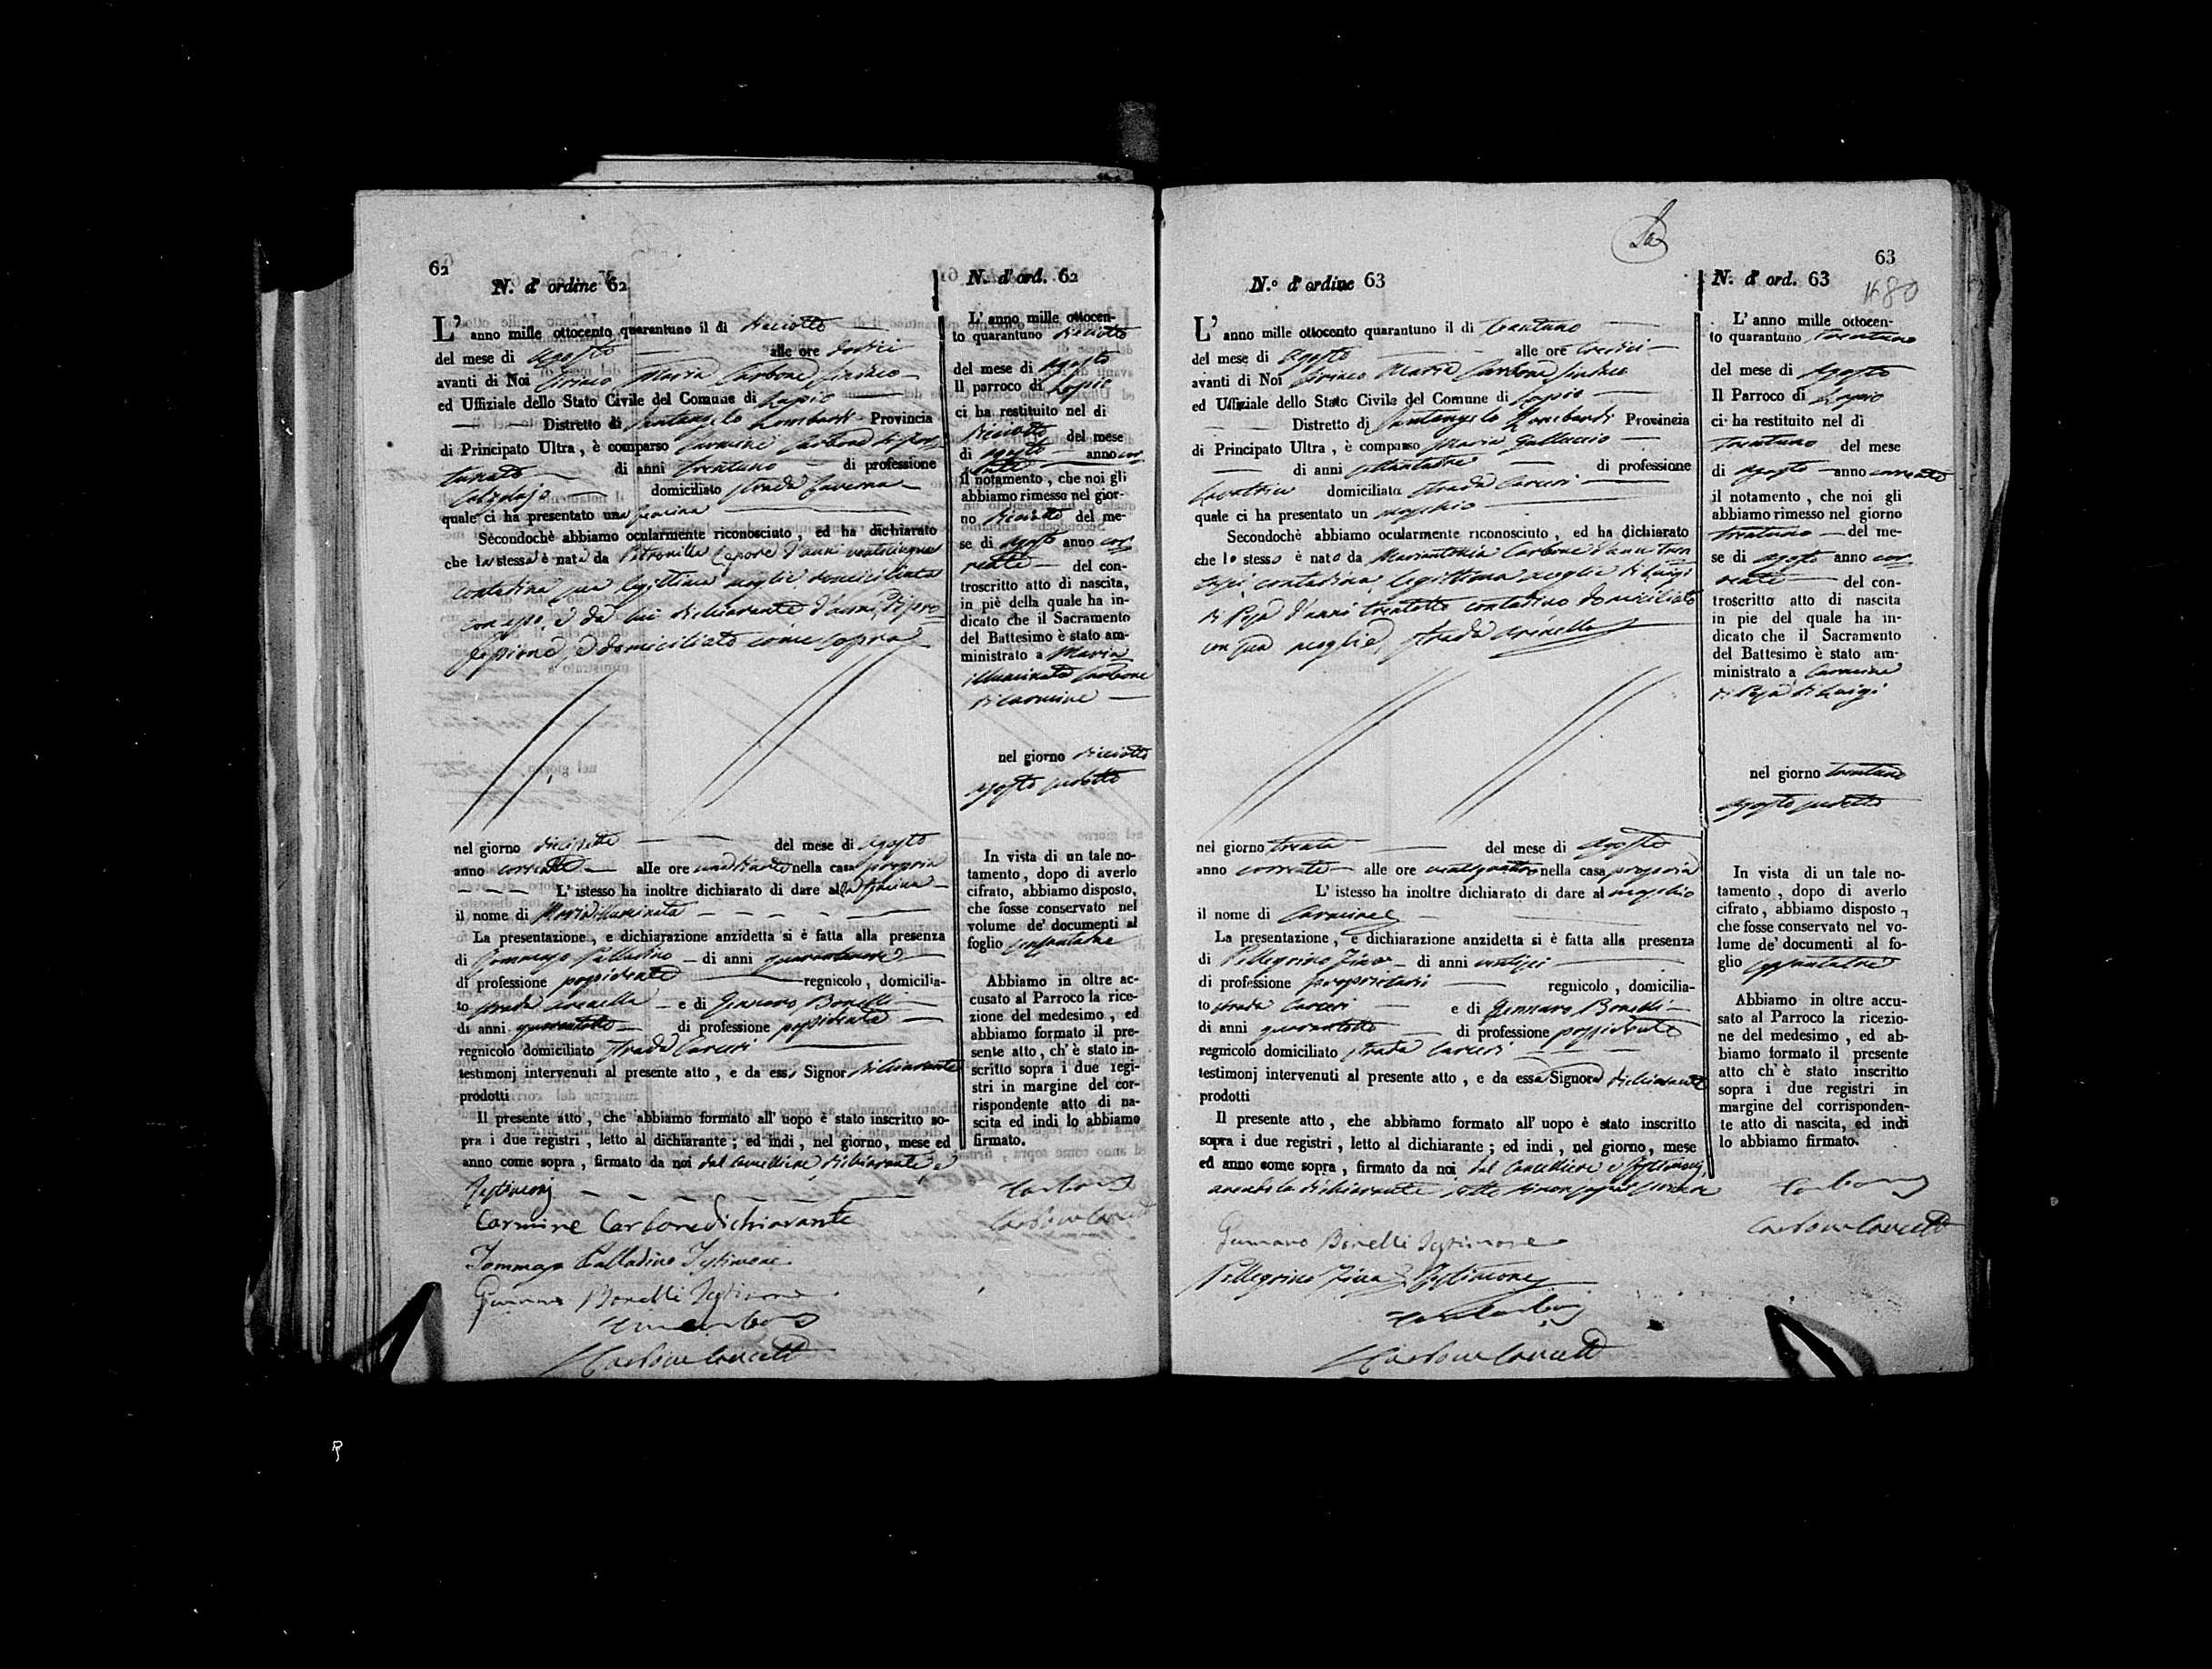 62
N.º d' ordine 62
L' anno mille ottocento quarantuno il di diciotto
del mese di Agosto alle ore dodici
avanti di Noi Ciriaco Maria Carbone Sindaco
ed Uffiziale dello Stato Civile del Comune di Lapio
Distretto di Santangelo Lombardi Provincia
di Principato Ultra, è comparso Carmine Carbone di For=
tunato di anni trentuno di professione
Calzolajo domiciliato strada Taverna
quale ci ha presentato una femina
Secondochè abbiamo ocularmente riconosciuto, ed ha dichiarato
che la stessa è nata da Petronilla Lepore d'anni venticinque
contadina sua legittima moglie domiciliata
con esso, e da lui dichiarante d'anni, di pro=
fessione, e domiciliato come sopra
nel giorno diciesette del mese di Agosto
anno corrente alle ore nella casa propria
L' istesso ha inoltre dichiarato di dare alla femina
il nome di Maria Illuminata
La presentazione, e dichiarazione anzidetta si è fatta alla presenza
di Tommaso Palladino di anni
di professione possidente regnicolo, domicilia-
to strada Arenella e di Gennaro Bonelli
di anni quarantotto di professione possidente
regnicolo domiciliato strada Carceri
testimonj intervenuti al presente atto, e da esso Signor dichiarante
prodotti
Il presente atto, che abbiamo formato all' uopo è stato inscritto so-
pra i due registri, letto al dichiarante; ed indi, nel giorno, mese ed
anno come sopra, firmato da noi dal Cancelliere dichiarante, e
Testimonj
Carmine Carbone dichiarante
Tommaso Palladino Testimone
Gennaro Bonelli Testimone
Carbone Cancell
N.º d' ord. 62
L' anno mille ottocen-
to quarantuno diciotto
del mese di Agosto
Il parroco di Lapio
ci ha restituito nel di
diciotto del mese
di agosto anno cor=
rente
il notamento, che noi gli
abbiamo rimesso nel gior-
no diciotto del me-
se di Agosto anno cor=
rente del con-
troscritto atto di nascita,
in piè della quale ha in-
dicato che il Sacramento
del Battesimo è stato am-
ministrato a Maria
illuminata Carbone
di Carmine
nel giorno diciotto
agosto sudetto
In vista di un tale no-
tamento, dopo di averlo
cifrato, abbiamo disposto,
che fosse conservato nel
volume de' documenti al
foglio
Abbiamo in oltre ac-
cusato al Parroco la rice-
zione del medesimo, ed
abbiamo formato il pre-
sente atto, ch' è stato in-
scritto sopra i due regi-
stri in margine del cor-
rispondente atto di na-
scita ed indi lo abbiamo
firmato.
Carbone Cancell
63
N.º d' ordine 63
L' anno mille ottocento quarantuno il di trentuno
del mese di Agosto alle ore tredici
avanti di Noi Ciriaco Maria Carbone Sindaco
ed Uffiziale dello Stato Civile del Comune di Lapio
Distretto di Santangelo Lombardi Provincia
di Principato Ultra, è comparso Maria Galluccio
di anni di professione
Levatrice domiciliata strada Carceri
quale ci ha presentato un maschio
Secondochè abbiamo ocularmente riconosciuto, ed ha dichiarato
che lo stesso è nato da Mariantonia Carbone d'anni tren
tasei, contadina, legittima moglie di Luigi
di Peja d'anni trentotto contadino domiciliato
con sua moglie, strada Arenella
nel giorno trenta del mese di Agosto
anno corrente alle ore ventiquattro nella casa propria
L' istesso ha inoltre dichiarato di dare al maschio
il nome di Carmine
La presentazione, e dichiarazione anzidetta si è fatta alla presenza
di Pellegrino di anni ventisei
di professione proprietario regnicolo, domicilia-
to strada Carceri e di Gennaro Bonelli
di anni quarantotto di professione possidente
regnicolo domiciliato strada Carceri
testimonj intervenuti al presente atto, e da essa Signora dichiarante
prodotti
Il presente atto, che abbiamo formato all' uopo è stato inscritto
sopra i due registri, letto al dichiarante; ed indi, nel giorno, mese
ed anno come sopra, firmato da noi dal Cancelliere e Testimonj,
avendo la dichiarante detto di non saper scrivere
Gennaro Bonelli Testimone
Pellegrino Testimone
Carbone Cancell
N.º d' ord. 63
L' anno mille ottocen-
to quarantuno trentuno
del mese di Agosto
Il Parroco di Lapio
ci ha restituito nel di
trentuno del mese
di Agosto anno corrente
il notamento, che noi gli
abbiamo rimesso nel giorno
trentuno del me-
se di Agosto anno cor=
rente del con-
troscritto atto di nascita
in pie del quale ha in-
dicato che il Sacramento
del Battesimo è stato am-
ministrato a Carmine
di Peja di Luigi
nel giorno trentuno
agosto sudetto
In vista di un tale no-
tamento, dopo di averlo
cifrato, abbiamo disposto,
che fosse conservato nel vo-
lume de' documenti al fo-
glio
Abbiamo in oltre accu-
sato al Parroco la ricezio-
ne del medesimo, ed ab-
biamo formato il presente
atto ch' è stato inscritto
sopra i due registri in
margine del corrisponden-
te atto di nascita, ed indi
lo abbiamo firmato.
Carbone Cancell